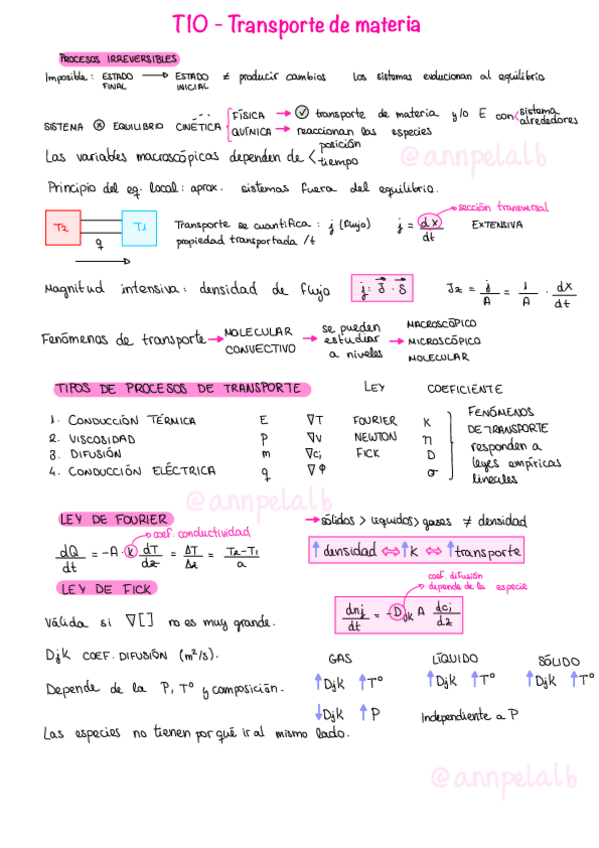 T10 - Transporte de materia
PROCESOS IRREVERSIBLES
Imposible: ESTADO FINAL → ESTADO INICIAL ≠ producir cambios Los sistemas evolucionan al equilibrio
SISTEMA ⊗ EQUILIBRIO CINÉTICA
FÍSICA → transporte de materia y/o E con < sistema alrededores
QUÍMICA → reaccionan las especies
Las variables macroscópicas dependen de < posición tiempo
@annpelalb
Principio del eq. local: aprox. sistemas fuera del equilibrio.
T2 T1
q
Transporte se cuantifica: j (flujo)
propiedad transportada /t
j = dx/dt
sección transversal
EXTENSIVA
Magnitud intensiva: densidad de flujo
j: J · S
Jz = j/A = 1/A · dx/dt
Fenómenos de transporte → MOLECULAR CONVECTIVO → se pueden estudiar a niveles → MACROSCÓPICO MICROSCÓPICO MOLECULAR
TIPOS DE PROCESOS DE TRANSPORTE LEY COEFICIENTE
1. CONDUCCIÓN TÉRMICA E ∇T FOURIER K
2. VISCOSIDAD P ∇v NEWTON η
3. DIFUSIÓN m ∇cj FICK D
4. CONDUCCIÓN ELÉCTRICA q ∇φ σ
FENÓMENOS
DE TRANSPORTE
responden a
leyes empíricas
lineales
@annpelalb
LEY DE FOURIER
coef. conductividad
→ sólidos > líquidos > gases ≠ densidad
dQ/dt = -A · K dT/dz = ΔT/Δz = T2-T1/a
↑ densidad ⇔ ↑ K ⇔ ↑ transporte
LEY DE FICK
coef. difusión
depende de la especie
dnj/dt = -Djk A dcj/dz
Válida si ∇[] no es muy grande.
Djk COEF. DIFUSIÓN (m²/s).
GAS LÍQUIDO SÓLIDO
Depende de la P, Tº y composición.
↑Djk ↑Tº ↑Djk ↑Tº ↑Djk ↑Tº
↓Djk ↑P Independiente a P
Las especies no tienen por qué ir al mismo lado.
@annpelalb